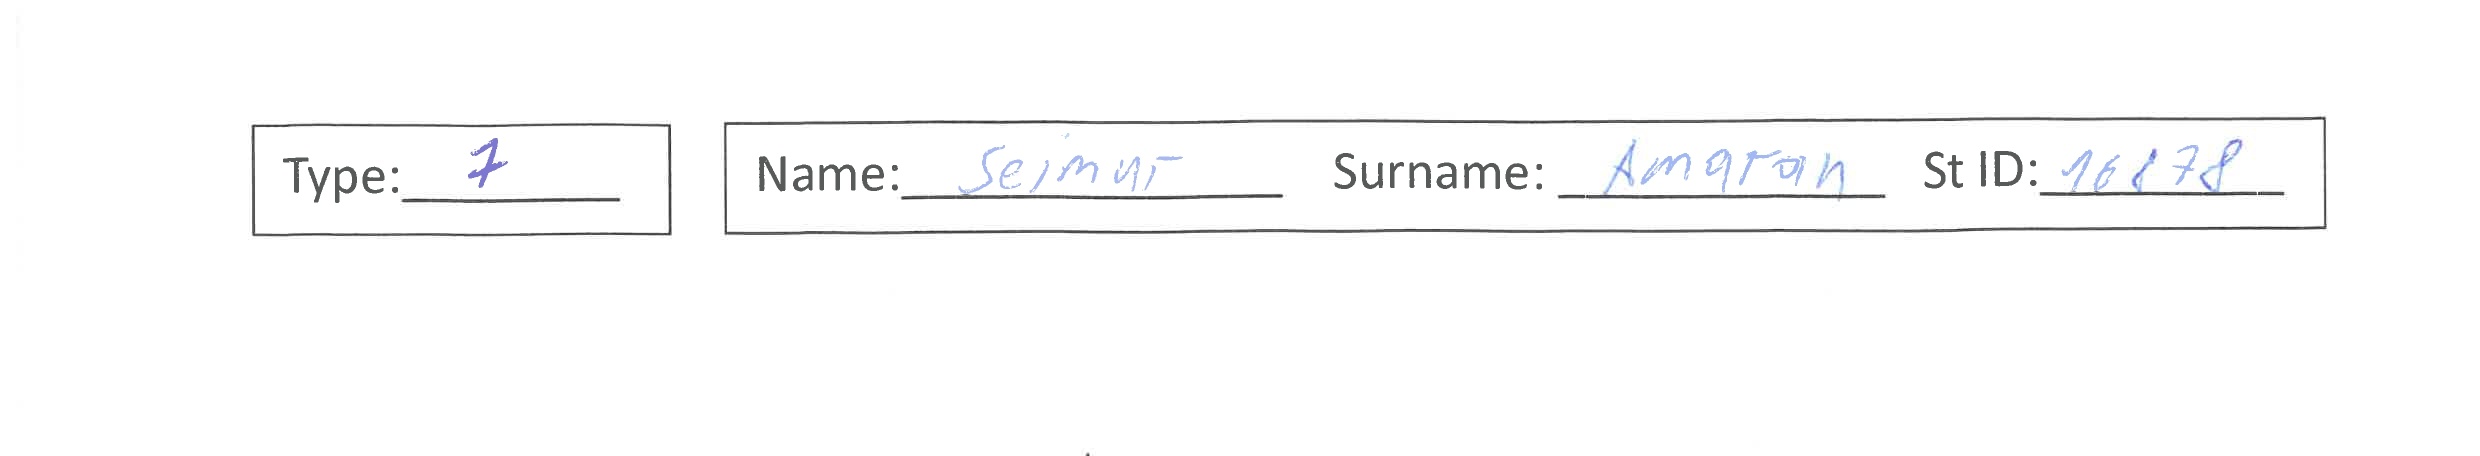 Type: 7 Name: Seimur Surname: Amaran St ID: 16878